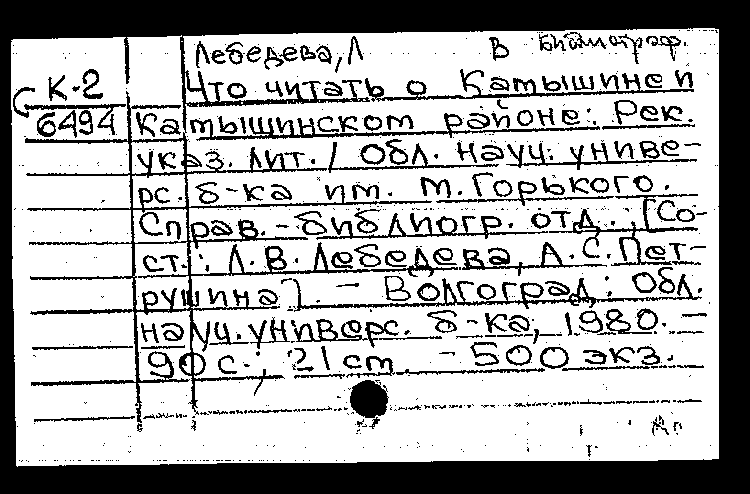 Лебедева, Л В Библиограф.
К-2 Что читать о Камышине и
6494 Камышинском районе: Рек.
указ. лит. / Обл. науч. универ-
рс. б-ка им. М. Горького.
Справ.-библиогр. отд.; [Со-
ст.: Л. В. Лебедева, А. С. Пет-
рушина]. - Волгоград: Обл.
науч. универс. б-ка, 1980. -
90 с.; 21 cm. - 500 экз.